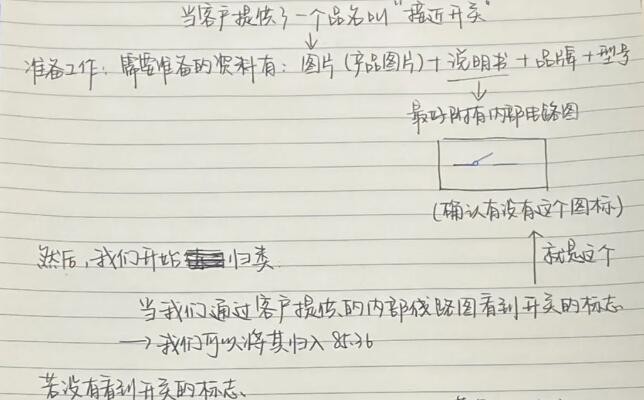 当客户提供了一个品名叫"接近开关"
准备工作:需要准备的资料有:图片(产品图片)+说明书+品牌+型号
最好附有内部电路图
(确认有没有这个图标)
就是这个
然后,我们开始归类
当我们通过客户提供的内部线路图看到开关的标志
→我们可以将其归入85.36
若没有看到开关的标志、